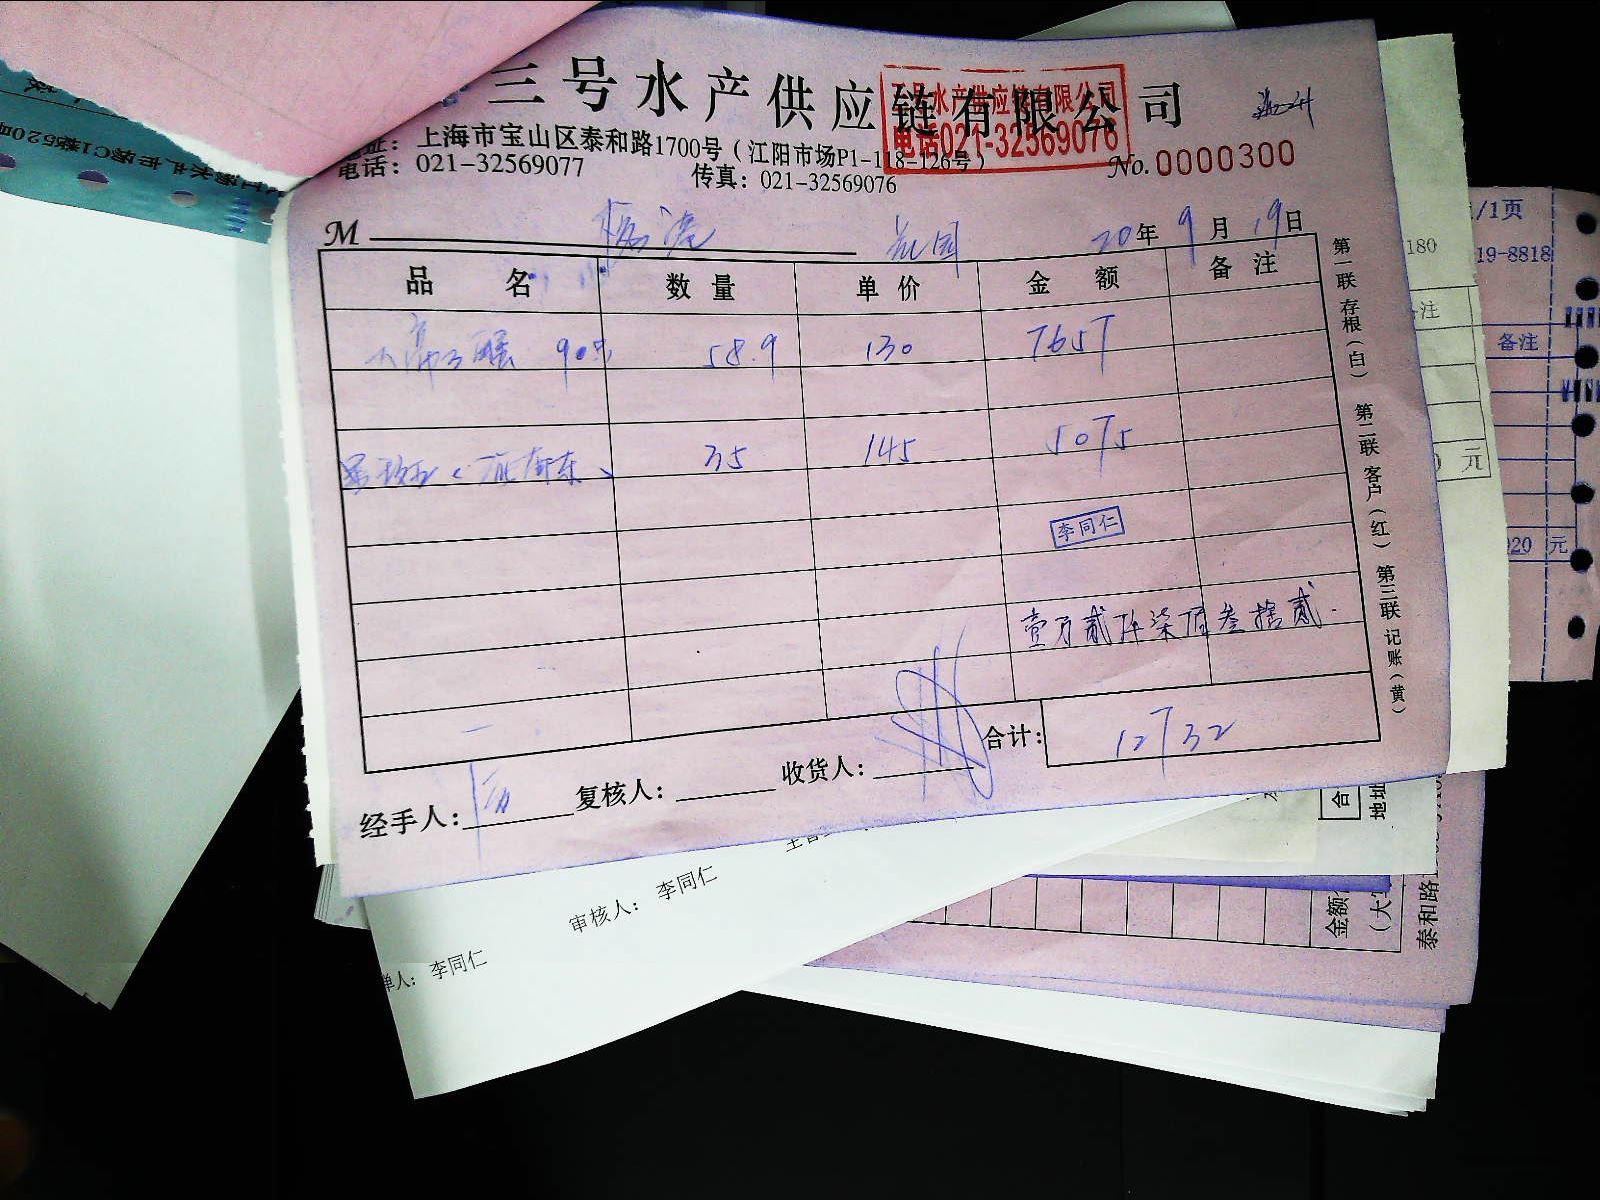 三号水产供应链有限公司
三号水产供应链有限公司
电话021-32569076
址：上海市宝山区泰和路1700号（江阳市场P1-118-126号）
电话：021-32569077
传真：021-32569076
No.0000300
M
20年9月19日
品名 数量 单价 金额 备注
58.9 130 7657
35 145 5075
李同仁
壹万贰仟柒佰叁拾贰
合计： 12732
经手人：
复核人：
收货人：
第一联 存根（白） 第二联 客户（红） 第三联 记账（黄）
/1页
180
19-8818
注
备注
元
020 元
审核人： 李同仁
单人： 李同仁
合
地址
金额
（大
泰和路1